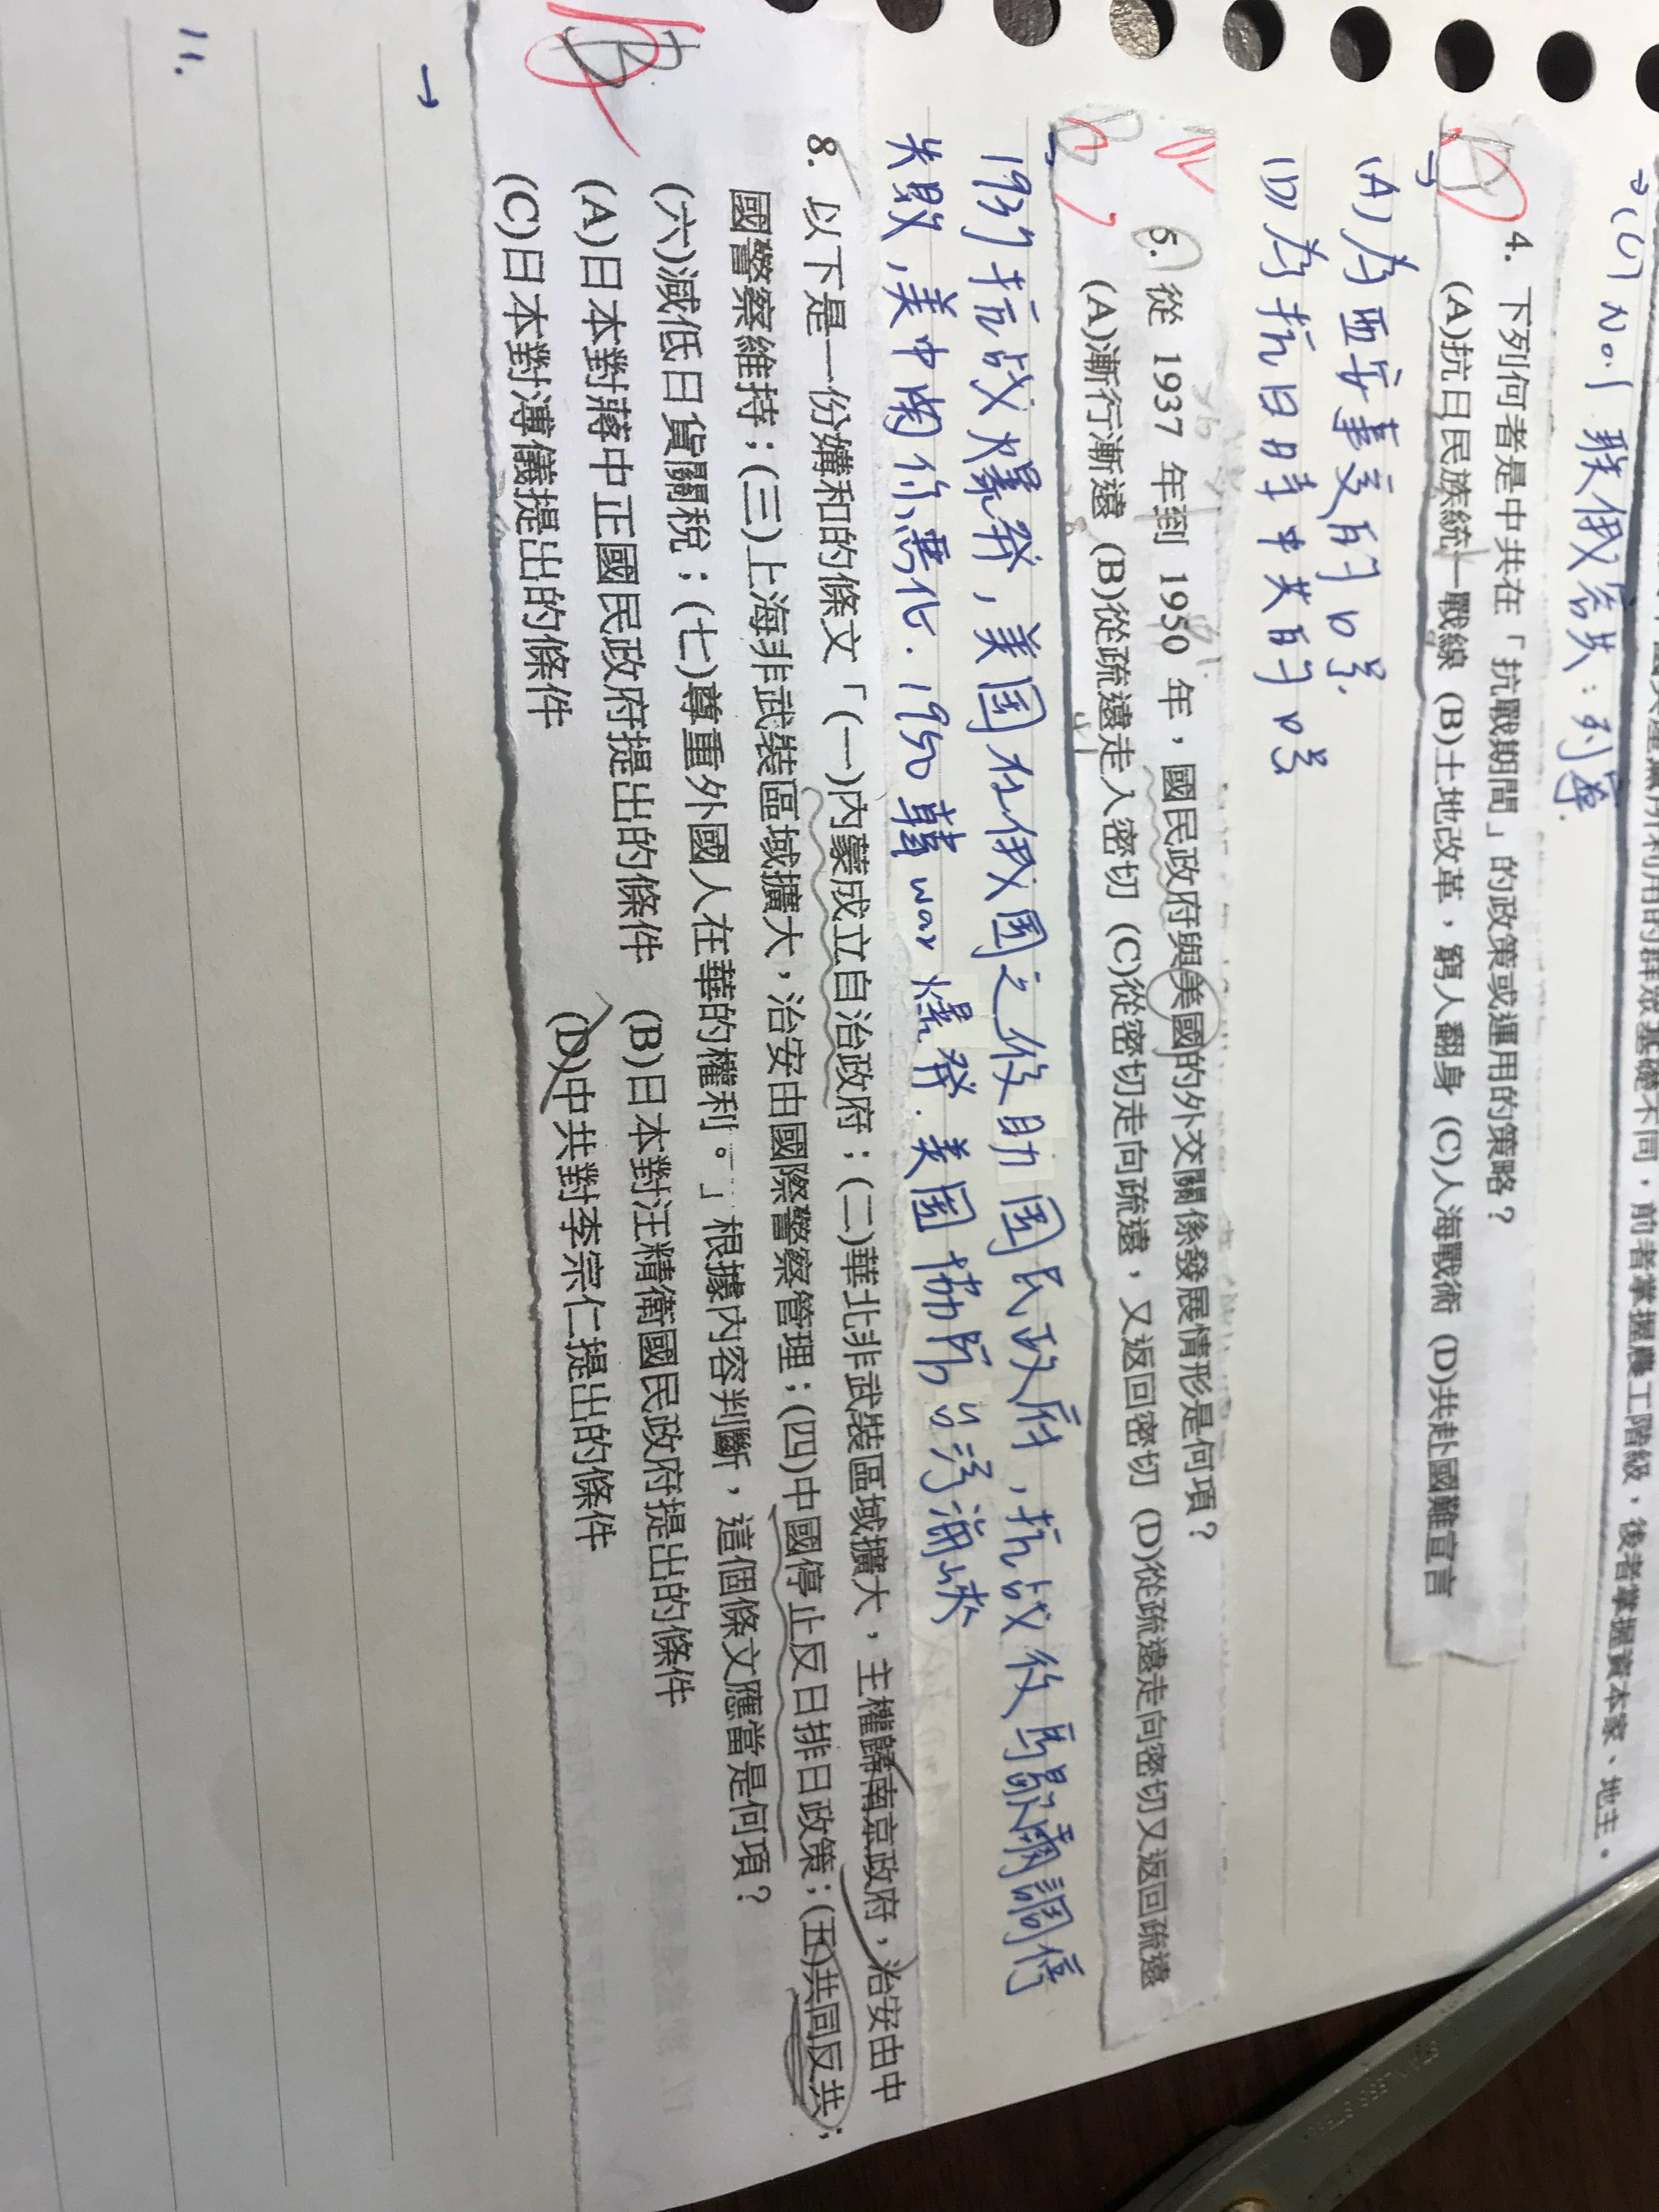 →(C) No.1 聯俄容共：列寧.
4. 下列何者是中共在「抗戰期間」的政策或運用的策略？
(A)抗日民族統一戰線 (B)土地改革，窮人翻身 (C)人海戰術 (D)共赴國難宣言
→
(A)為西安事變的口号.
(D)為抗日時中共的口号
5. 從 1937 年到 1950 年，國民政府與美國的外交關係發展情形是何項？
(A)漸行漸遠 (B)從疏遠走入密切 (C)從密切走向疏遠，又返回密切 (D)從疏遠走向密切又返回疏遠
→
1937抗战爆発，美国在俄国之後助国民政府，抗战後馬歇爾調停
失敗，美中関係悪化. 1950韓war爆発. 美国協防台湾海峡
8. 以下是一份媾和的條文「(一)內蒙成立自治政府；(二)華北非武裝區域擴大，主權歸南京政府，治安由中
國警察維持；(三)上海非武裝區域擴大，治安由國際警察管理；(四)中國停止反日排日政策；(五)共同反共；
(六)減低日貨關稅；(七)尊重外國人在華的權利。」根據內容判斷，這個條文應當是何項？
(A)日本對蔣中正國民政府提出的條件 (B)日本對汪精衛國民政府提出的條件
(C)日本對溥儀提出的條件 (D)中共對李宗仁提出的條件
→
11.